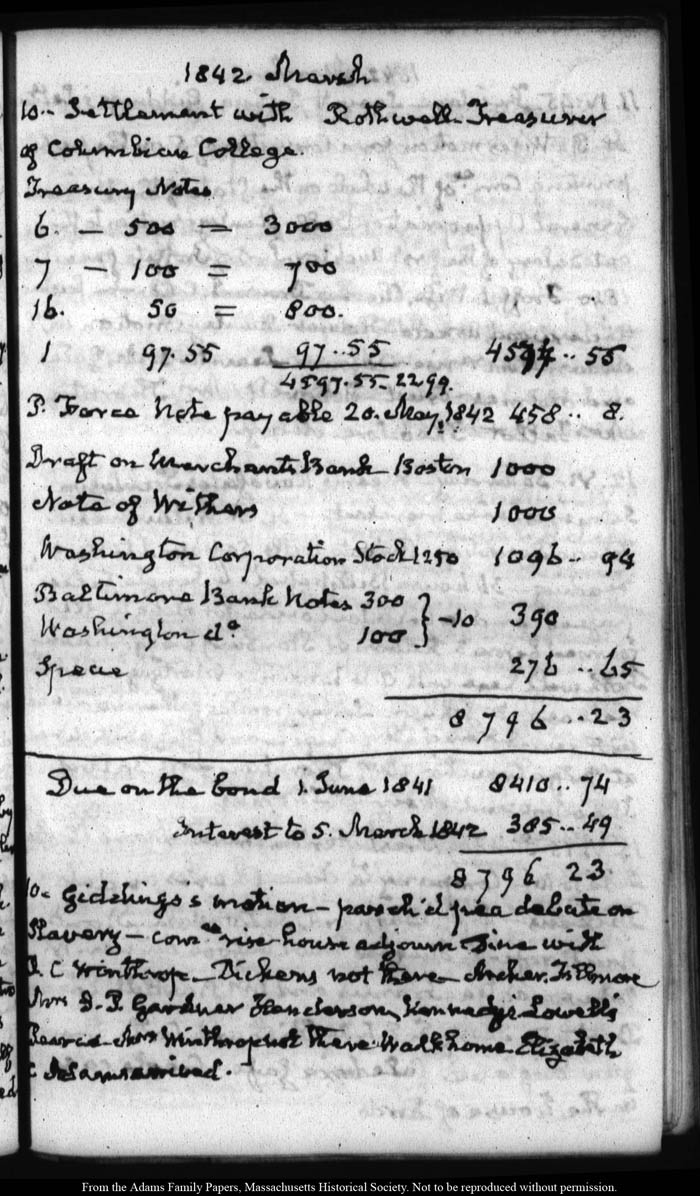 1842 March
10. Settlement with Rothwell Treasurer
of Columbian College.
Treasury Notes
6. — 500 = 3000
7 — 100 = 700
16. 50 = 800.
1 97.55 97..55 4597..55
4597.55. 2299.
P. Force Note payable 20. May, 1842 458.. 8.
Draft on Merchants Bank Boston 1000
Note of Withers 1000
Washington Corporation Stock 1250 1096.. 94
Baltimore Bank Notes 300
Washington do 100 } -10 390
Specie 276..65
8796..23
Due on the bond 1. June 1841 8410..74
Interest to 5. March 1842 385..49
8796 23
10. Giddings's motion — parch'd pea debate on
Slavery — comee rise house adjourn Dine with
R. C Winthrop — Dickens not there Archer. Fillmore
Mrs J. P. Gardner Henderson, Kennedy's Lowell's
Pearce Mrs Winthrop not there Walk home Elizabeth
arrived.
From the Adams Family Papers, Massachusetts Historical Society. Not to be reproduced without permission.